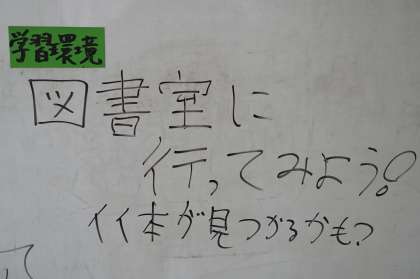 学習環境
図書室に
行ってみよう!
イイ本が見つかるかも?
て